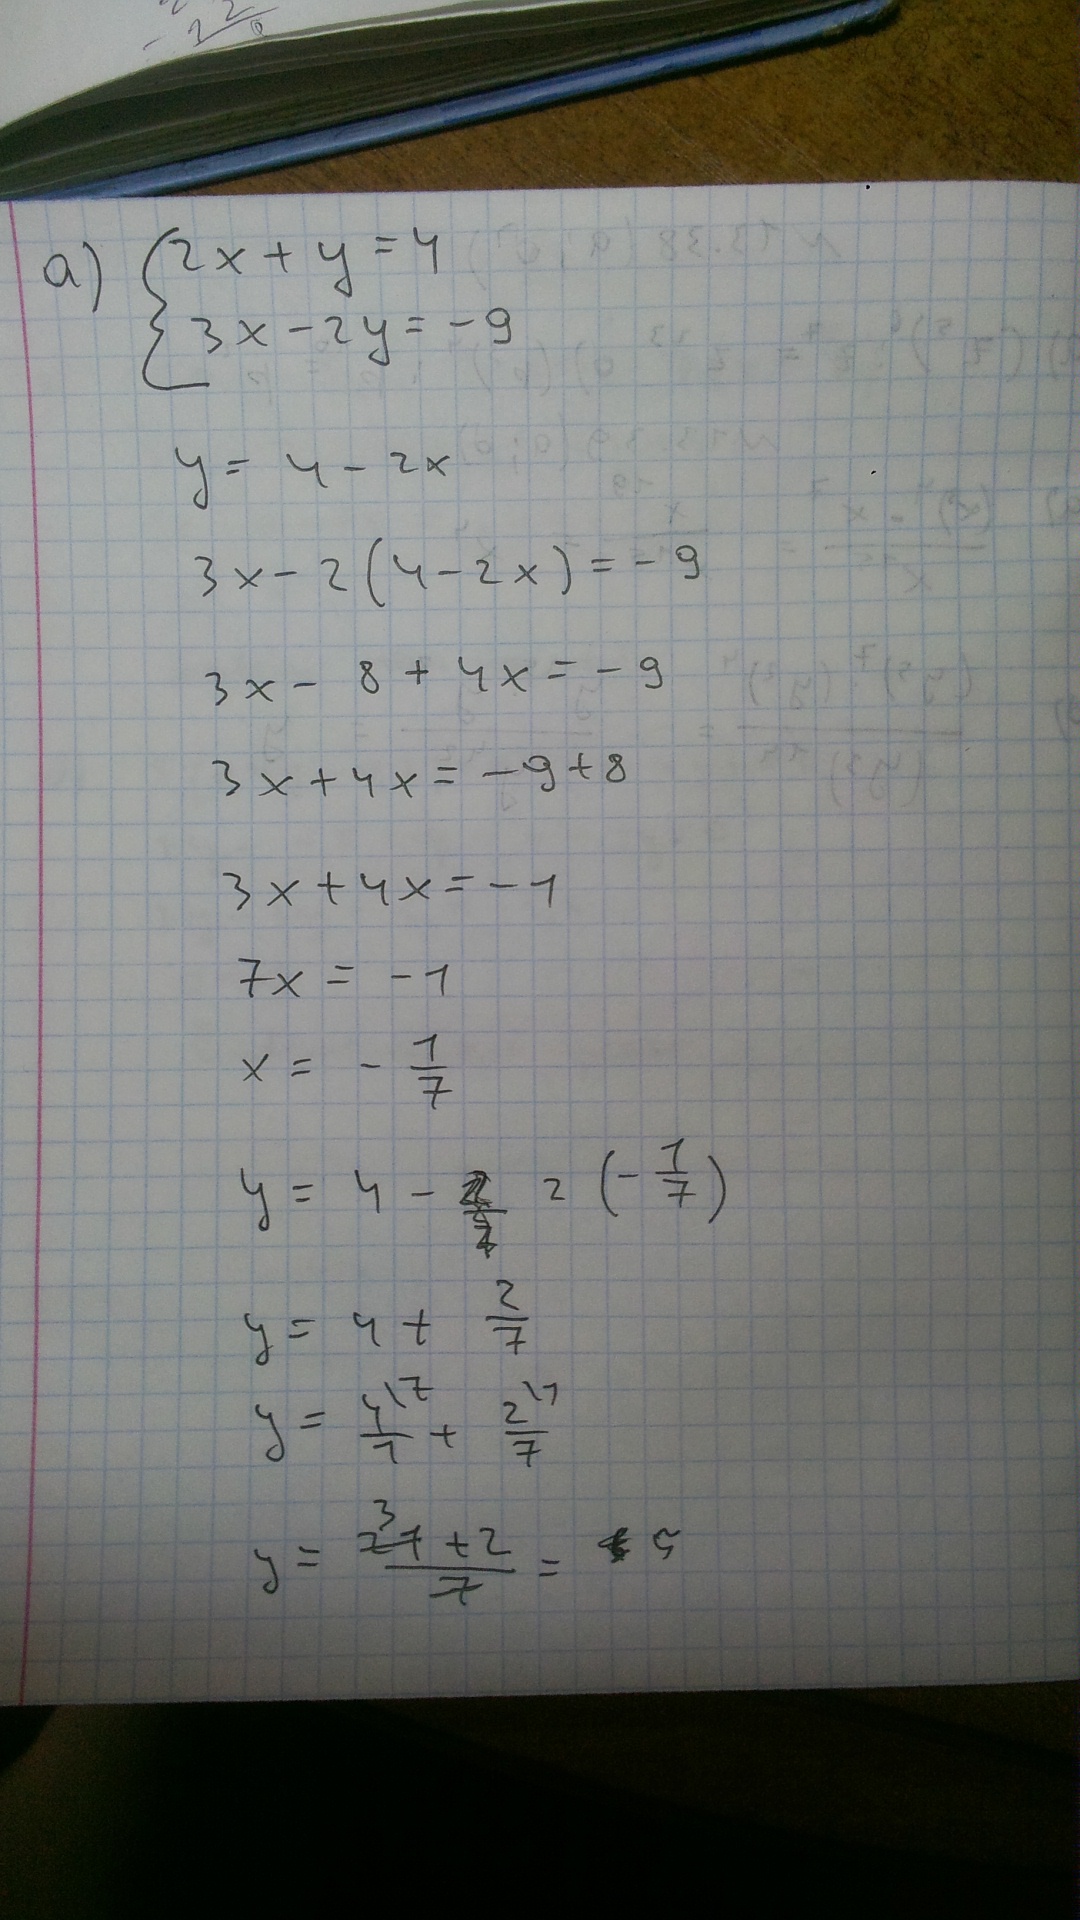 a) { 2x + y = 4
3x - 2y = -9
y = 4 - 2x
3x - 2(4 - 2x) = -9
3x - 8 + 4x = -9
3x + 4x = -9 + 8
3x + 4x = -1
7x = -1
x = - 1/7
y = 4 - 2 (- 1/7)
y = 4 + 2/7
y = 4\7/1 + 2\1/7
y = 3 27 + 2 / 7 = 5